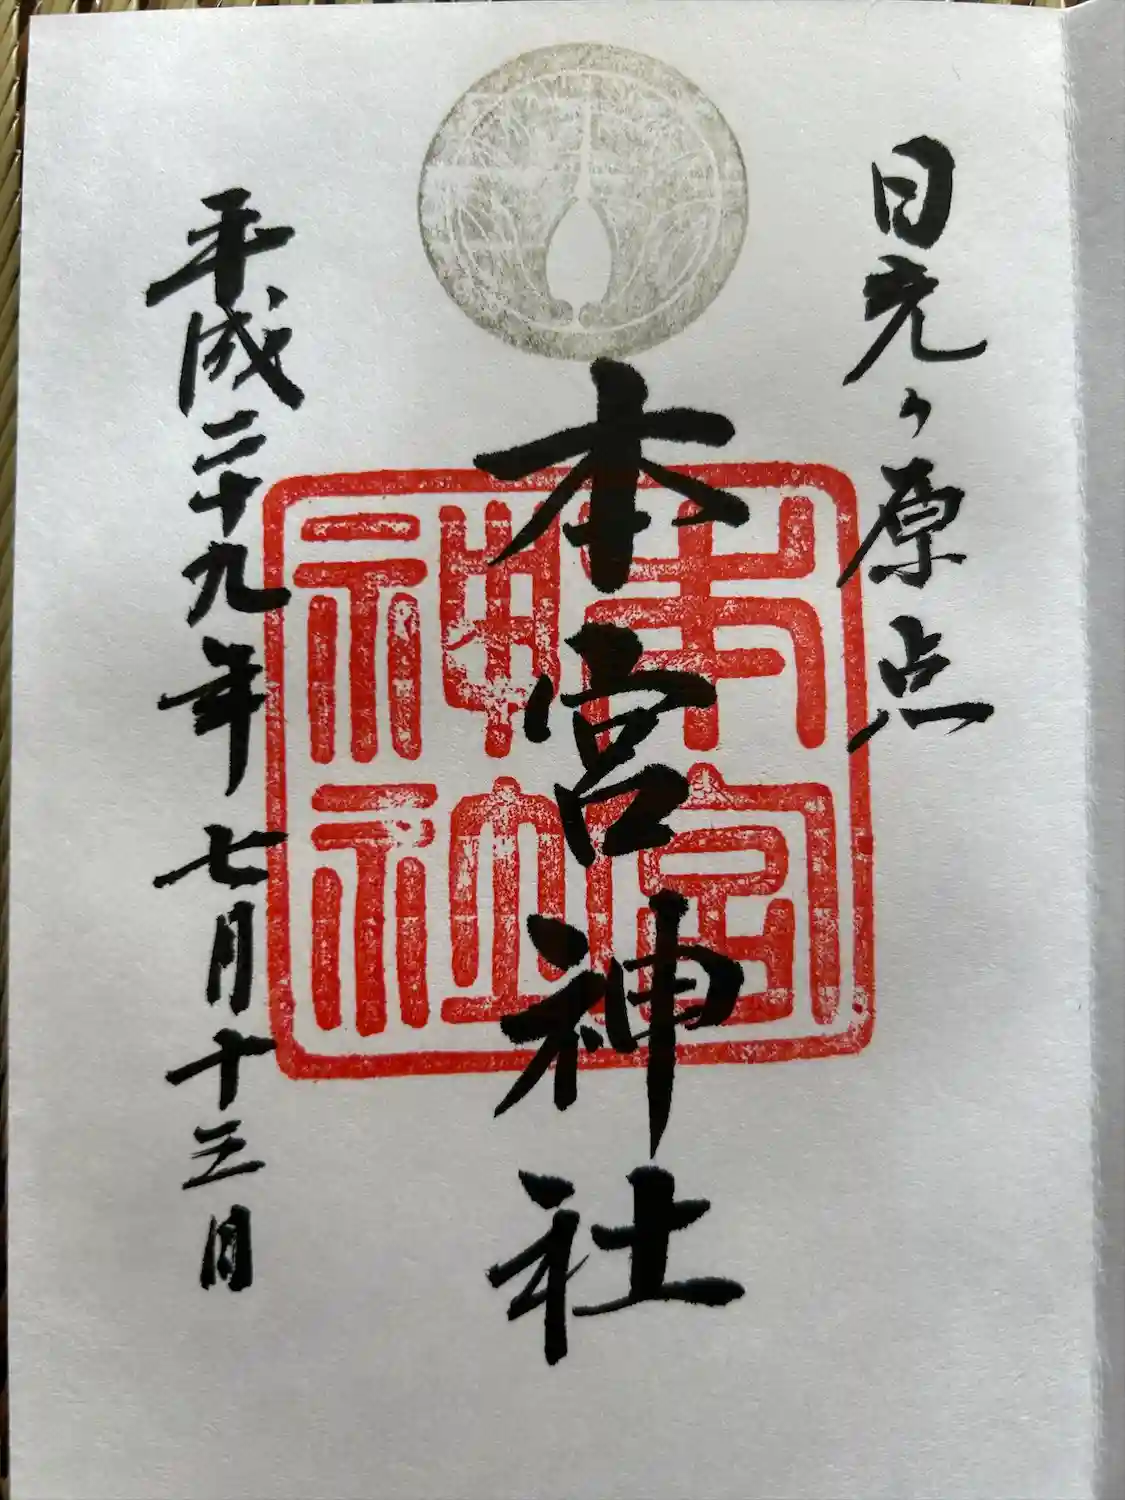 日光ヶ原点
本宮神社
本宮神社
平成二十九年七月十三日